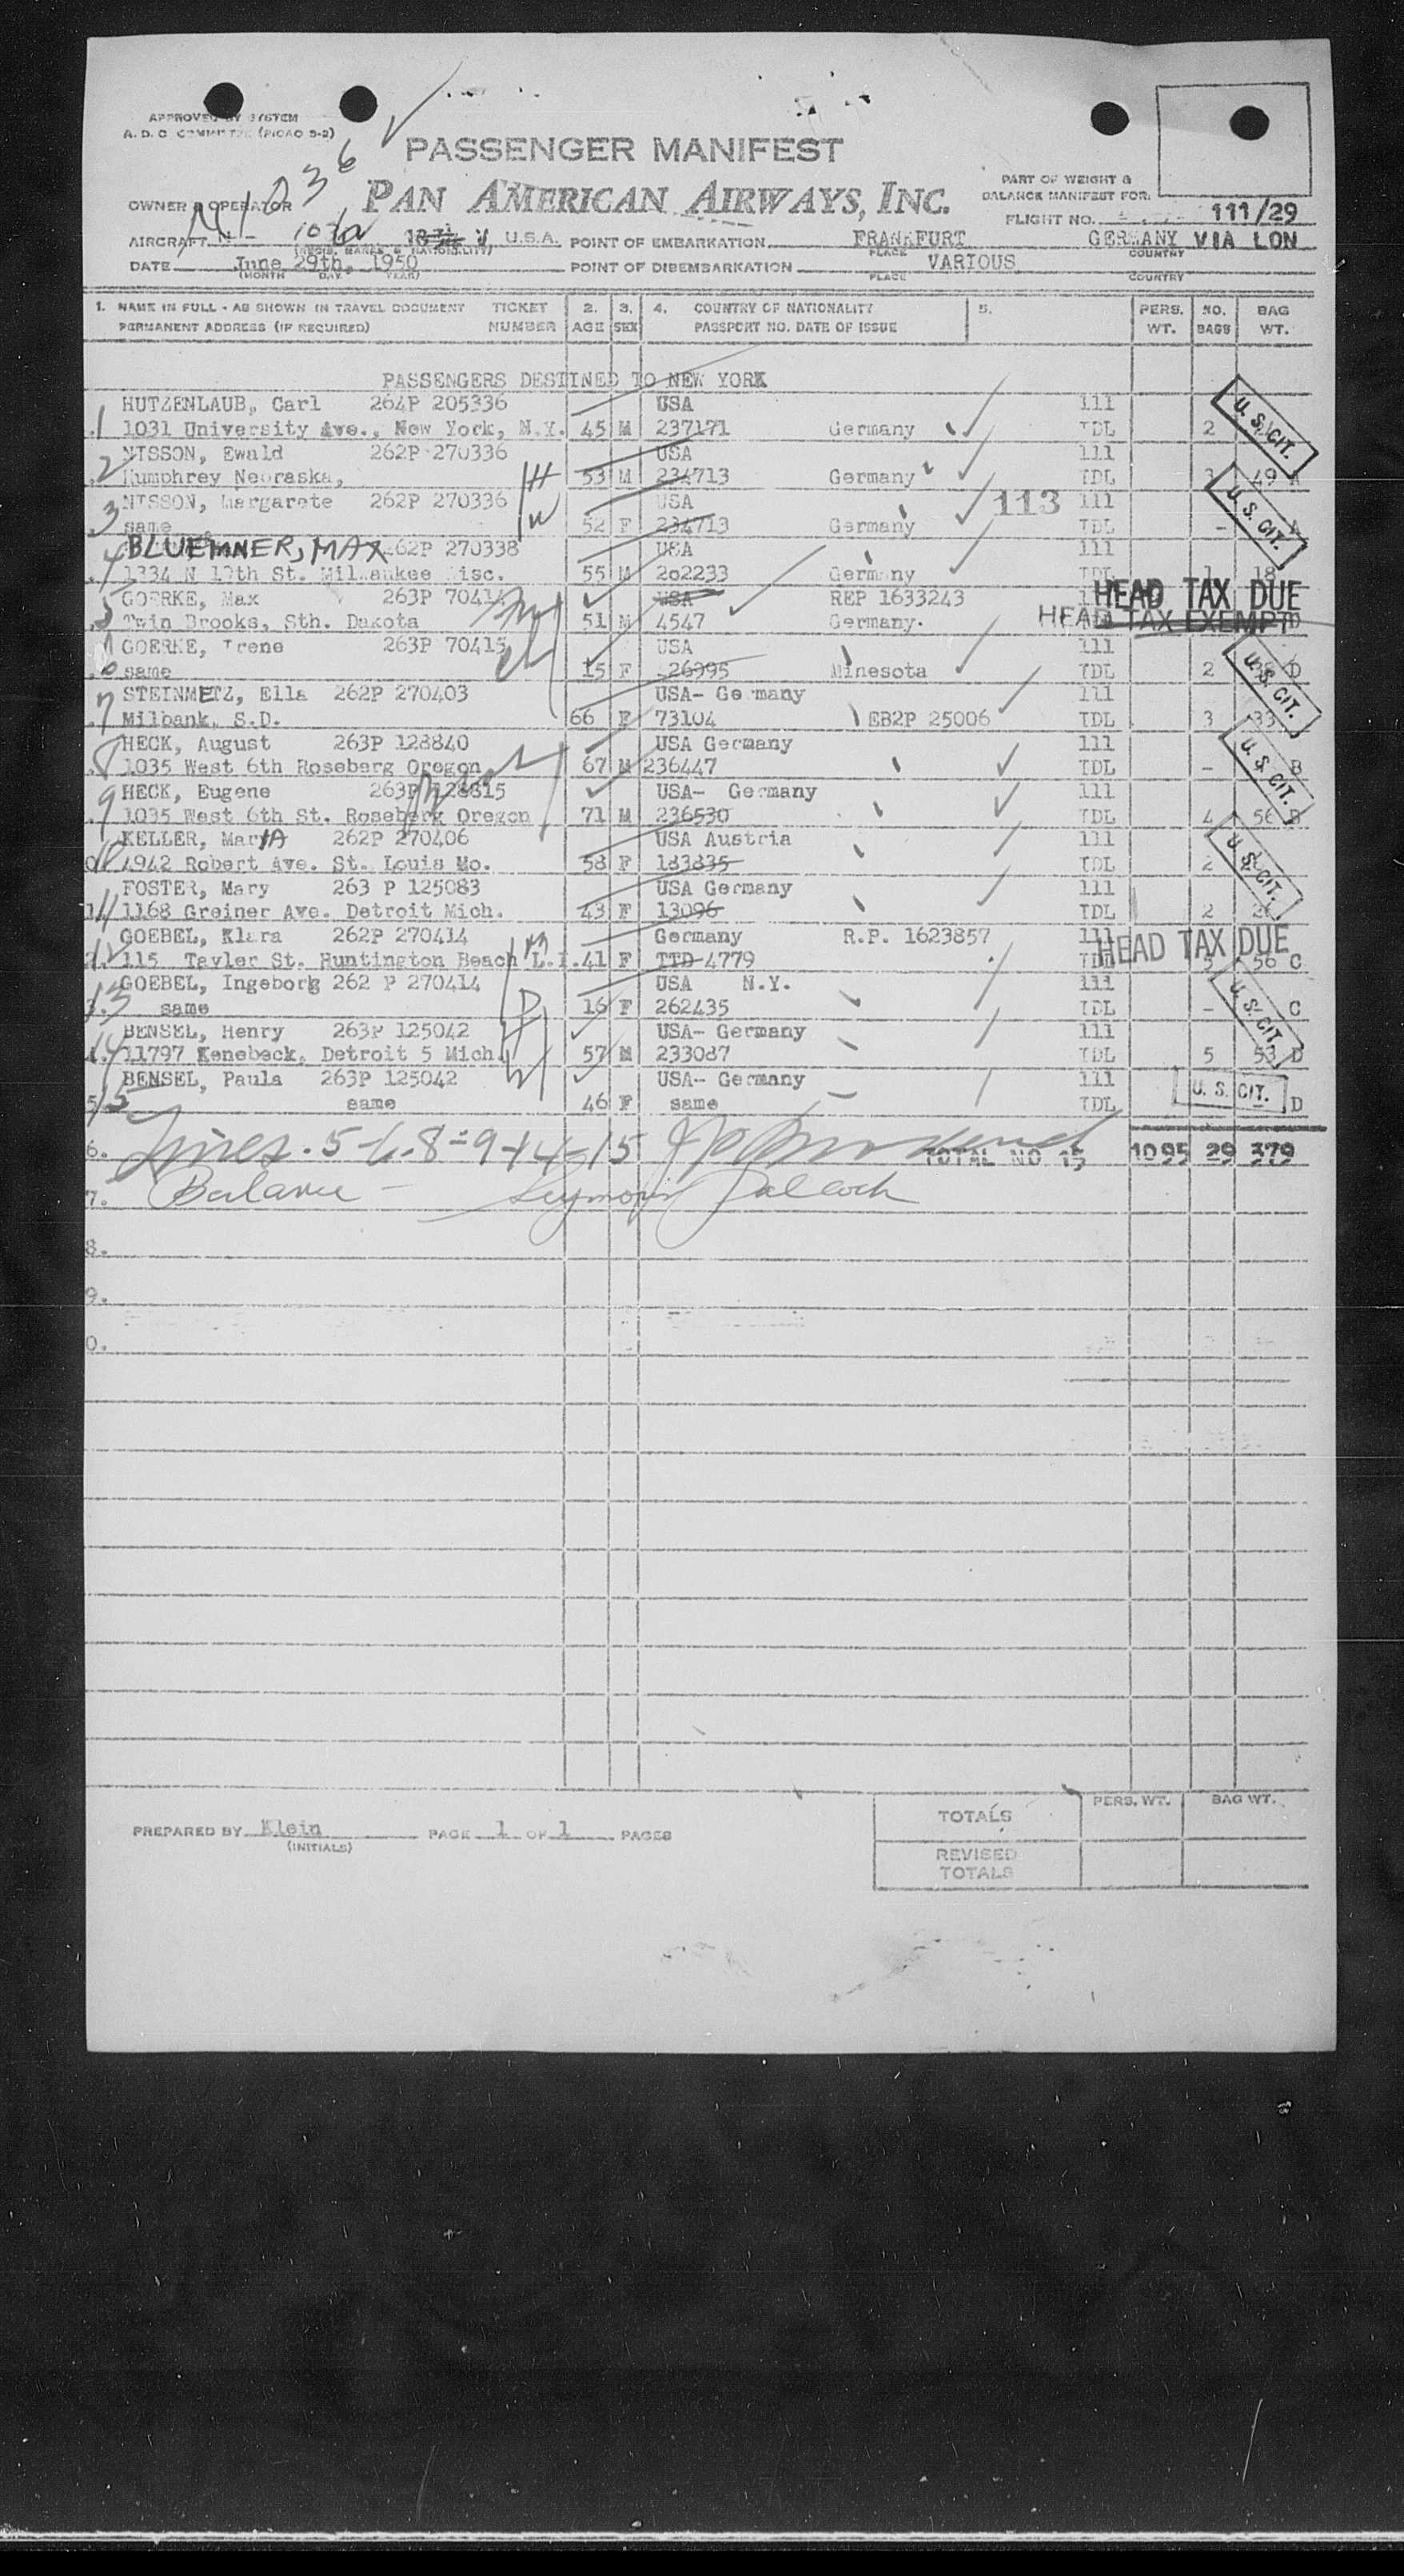 APPROVED BY SYSTEM
A. D. C. COMMITTEE (PICAO 5-2)
PASSENGER MANIFEST
OWNER & OPERATOR PAN AMERICAN AIRWAYS, INC.
N1036
PART OF WEIGHT &
BALANCE MANIFEST FOR
FLIGHT NO. 111/29
AIRCRAFT N - 1036 V U.S.A. POINT OF EMBARKATION FRANKFURT GERMANY VIA LON
(REGIS. MARKS & NATIONALITY) PLACE COUNTRY
DATE June 29th, 1950 POINT OF DISEMBARKATION VARIOUS
(MONTH DAY YEAR) PLACE COUNTRY
1. NAME IN FULL - AS SHOWN IN TRAVEL DOCUMENT TICKET 2. 3. 4. COUNTRY OF NATIONALITY 5. PERS. NO. BAG
PERMANENT ADDRESS (IF REQUIRED) NUMBER AGE SEX PASSPORT NO. DATE OF ISSUE WT. BAGS WT.
PASSENGERS DESTINED TO NEW YORK
HUTZENLAUB, Carl 264P 205336 USA 111
1 1031 University Ave., New York, N.Y. 45 M 237171 Germany IDL 2 U.S. CIT.
NISSON, Ewald 262P 270336 USA 111
2 Humphrey Nebraska, H 53 M 234713 Germany IDL 3 49 A
NISSON, Margarete 262P 270336 USA 113 111
3 same W 52 F 234713 Germany IDL - A U.S. CIT.
BLUEMNER, MAX 262P 270338 USA 111
4 1334 N 19th St. Milwaukee Wisc. 55 M 202233 Germany IDL 1 18
GOERKE, Max 263P 70414 USA REP 1633243 HEAD TAX DUE
5 Twin Brooks, Sth. Dakota 51 M 4547 Germany. HEAD TAX EXEMPT D
GOERKE, Irene 263P 70415 USA 111
6 same 15 F 26995 Minesota IDL 2 38 D U.S. CIT.
STEINMETZ, Ella 262P 270403 USA- Germany 111
7 Milbank, S.D. 66 F 73104 EB2P 25006 IDL 3 33
HECK, August 263P 128840 USA Germany 111
8 1035 West 6th Roseberg Oregon 67 M 236447 IDL - B U.S. CIT.
9 HECK, Eugene 263P 128815 USA- Germany 111
1035 West 6th St. Roseberg Oregon 71 M 236530 IDL 4 56 B
KELLER, MarIA 262P 270406 USA Austria 111
10 4942 Robert Ave. St. Louis Mo. 58 F 183835 IDL 2 U.S. CIT.
FOSTER, Mary 263 P 125083 USA Germany 111
11 1168 Greiner Ave. Detroit Mich. 43 F 13096 IDL 2
GOEBEL, Klara 262P 270414 Germany R.P. 1623857 111 HEAD TAX DUE
12 115 Tayler St. Huntington Beach L.I. 41 F TTD 4779 IDL 5 56 C
GOEBEL, Ingeborg 262 P 270414 USA N.Y. 111
13 same D 16 F 262435 IDL - C U.S. CIT.
BENSEL, Henry 263P 125042 USA- Germany 111
14 11797 Kenebeck, Detroit 5 Mich. H 57 M 233087 IDL 5 53 D
BENSEL, Paula 263P 125042 USA- Germany 111
15 same W 46 F same IDL U. S. CIT. D
6. Lines. 5-6-8-9-14-15 TOTAL NO 15 1095 29 379
7. Balance - Seymour
8.
9.
0.
PERS. WT. BAG WT.
TOTALS
PREPARED BY Klein PAGE 1 OF 1 PAGES
(INITIALS)
REVISED
TOTALS